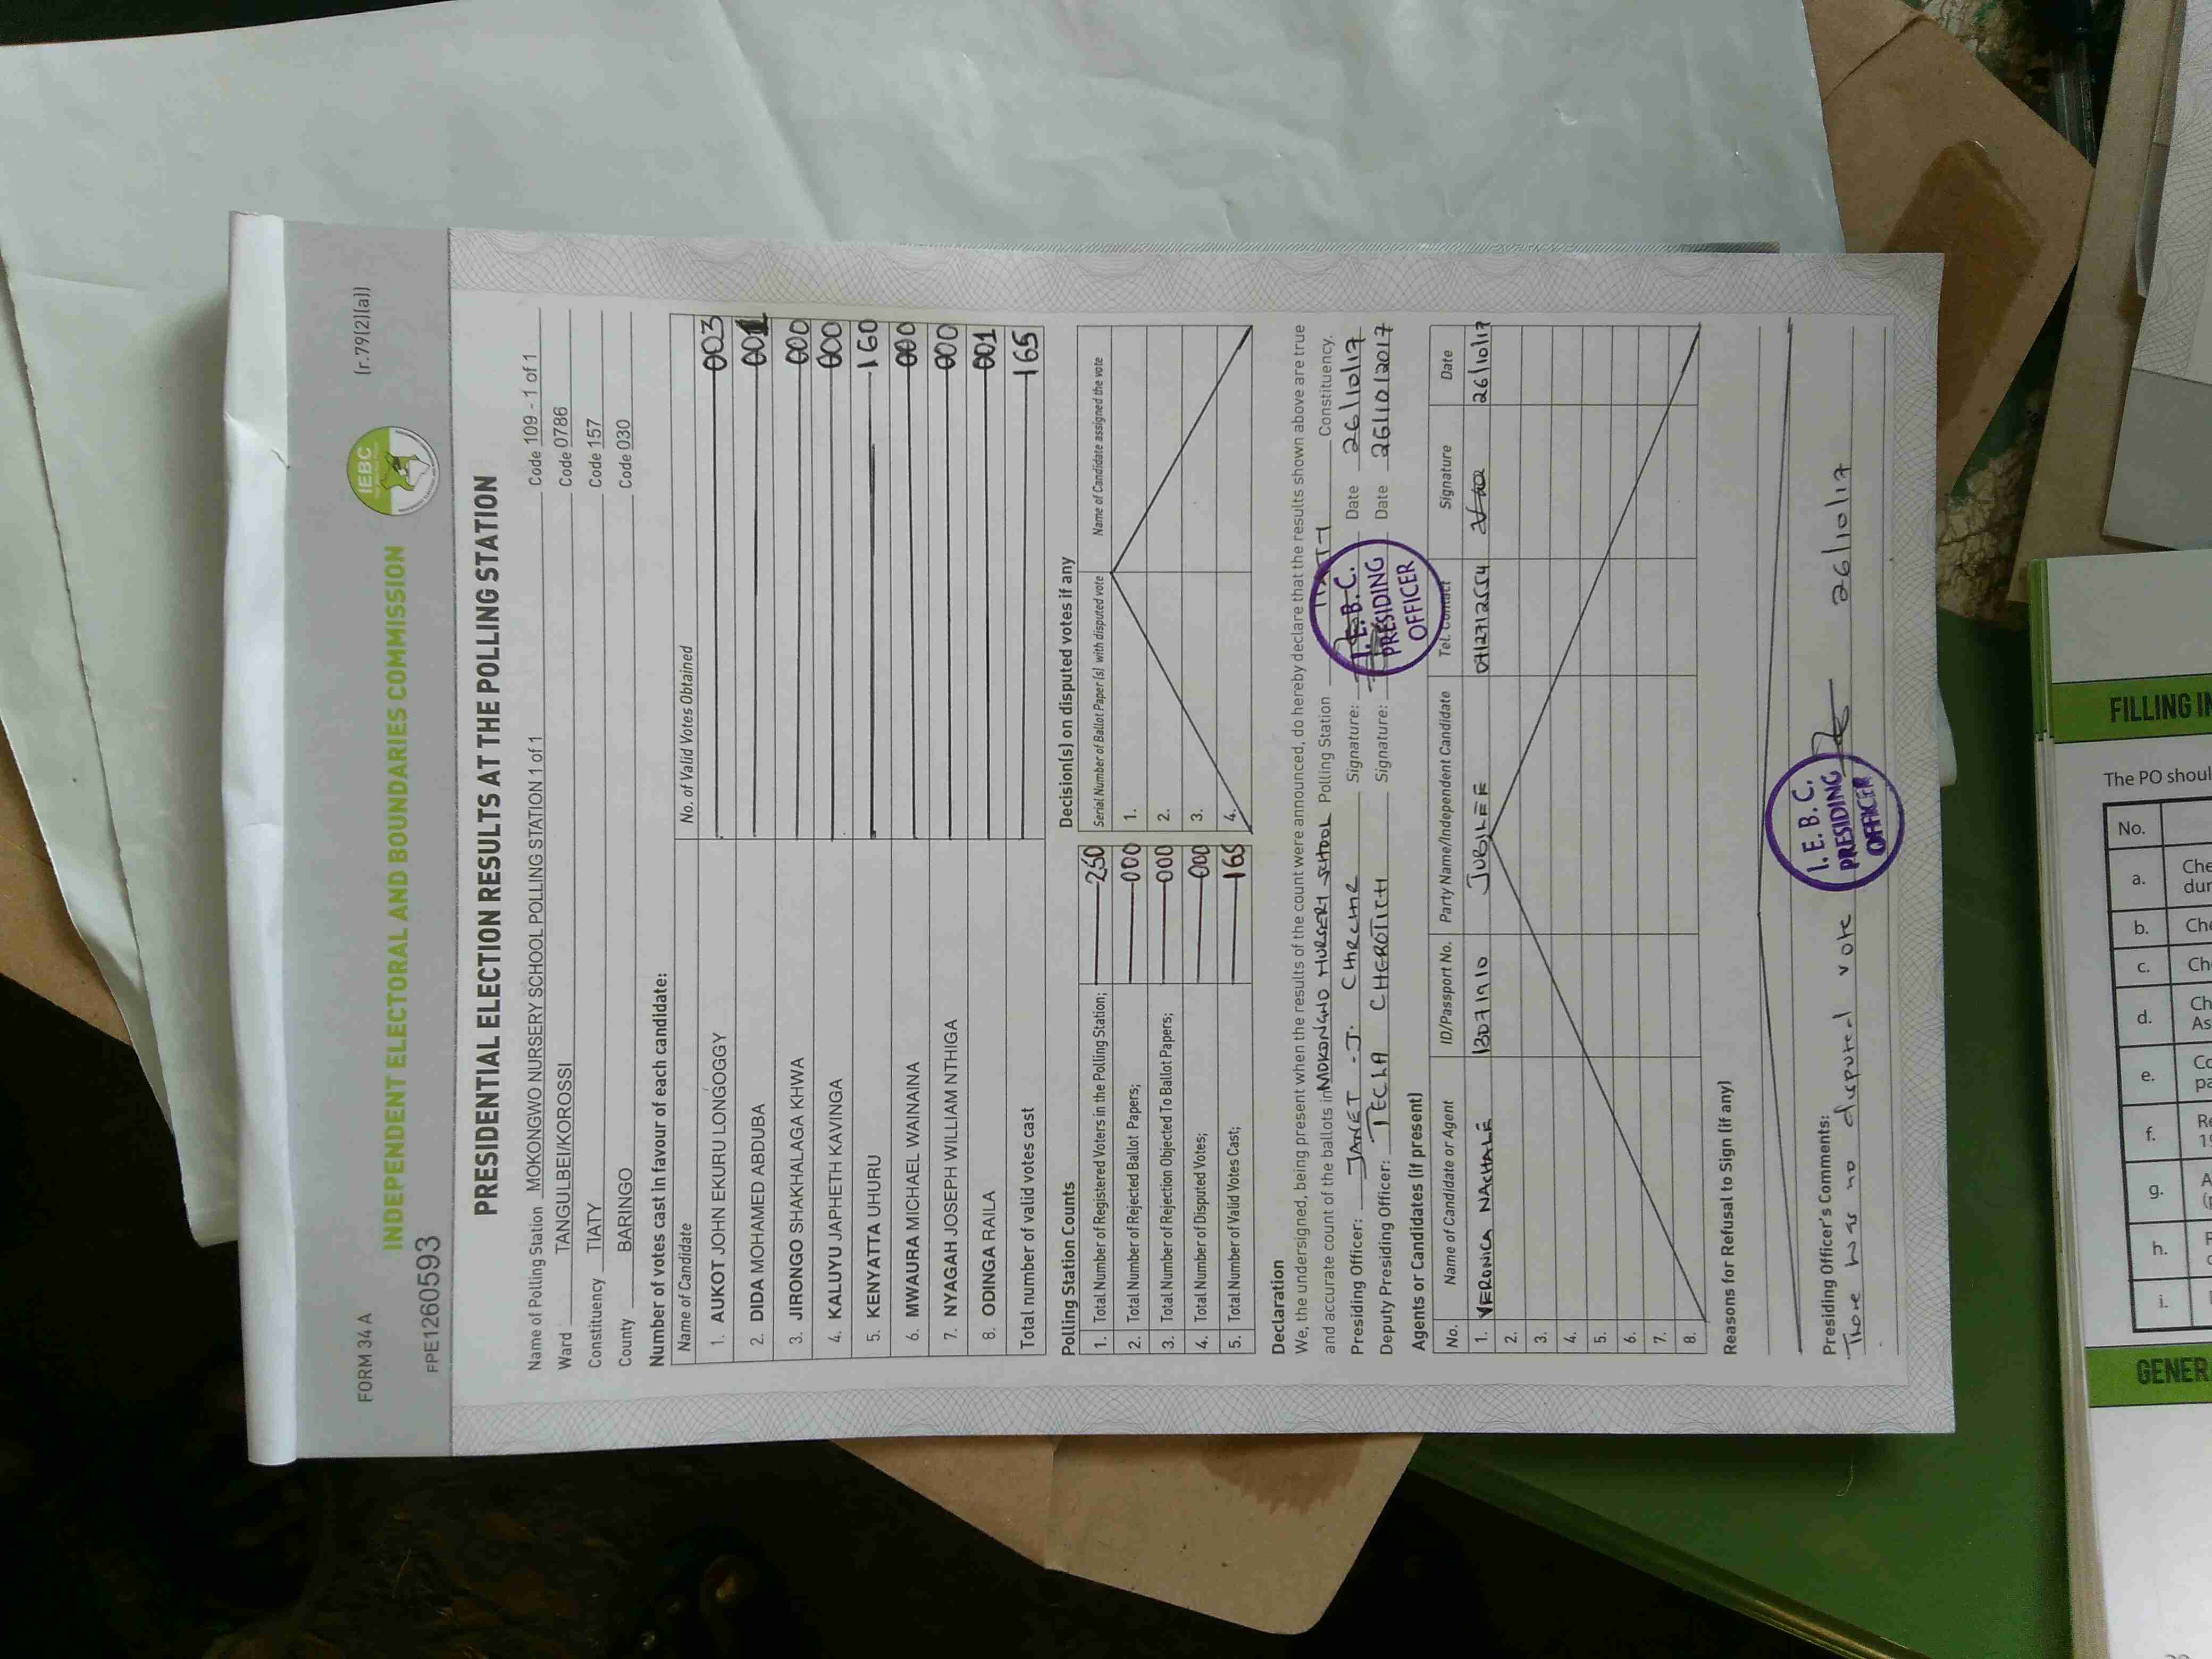 FORM 34 A
(r.79(2)(a))
IEBC
INDEPENDENT ELECTORAL AND BOUNDARIES COMMISSION
FPE1260593
PRESIDENTIAL ELECTION RESULTS AT THE POLLING STATION
Name of Polling Station MOKONGWO NURSERY SCHOOL POLLING STATION 1 of 1 Code 109 - 1 of 1
Ward TANGULBEI/KOROSSI Code 0786
Constituency TIATY Code 157
County BARINGO Code 030
Number of votes cast in favour of each candidate:
Name of Candidate No. of Valid Votes Obtained
1. AUKOT JOHN EKURU LONGOGGY 003
2. DIDA MOHAMED ABDUBA 001
3. JIRONGO SHAKHALAGA KHWA 000
4. KALUYU JAPHETH KAVINGA 000
5. KENYATTA UHURU 160
6. MWAURA MICHAEL WAINAINA 000
7. NYAGAH JOSEPH WILLIAM NTHIGA 000
8. ODINGA RAILA 001
Total number of valid votes cast 165
Polling Station Counts
1. Total Number of Registered Voters in the Polling Station; 250
2. Total Number of Rejected Ballot Papers; 000
3. Total Number of Rejection Objected To Ballot Papers; 000
4. Total Number of Disputed Votes; 000
5. Total Number of Valid Votes Cast; 165
Decision(s) on disputed votes if any
Serial Number of Ballot Paper(s) with disputed vote Name of Candidate assigned the vote
1.
2.
3.
4.
Declaration
We, the undersigned, being present when the results of the count were announced, do hereby declare that the results shown above are true
and accurate count of the ballots in MOKONGWO NURSERY SCHOOL Polling Station TIATY Constituency.
Presiding Officer: JANET J. Signature: Date 26/10/17
Deputy Presiding Officer: TECLA CHEROTICH Signature: Date 26/10/2017
I.E.B.C.
PRESIDING
OFFICER
Agents or Candidates (if present)
No. Name of Candidate or Agent ID/Passport No. Party Name/Independent Candidate Tel. Contact Signature Date
1. VERONICA NACHALE 13071910 JUBILEE 0712712554 26/10/17
2.
3.
4.
5.
6.
7.
8.
Reasons for Refusal to Sign (if any)
Presiding Officer's Comments:
There was no disputed vote 26/10/17
I.E.B.C.
PRESIDING
OFFICER
FILLING IN
The PO shoul
No.
a. Che
dur
b. Che
c. Ch
d. Ch
As
e. Co
pa
f. Re
g. A
h.
i.
GENER